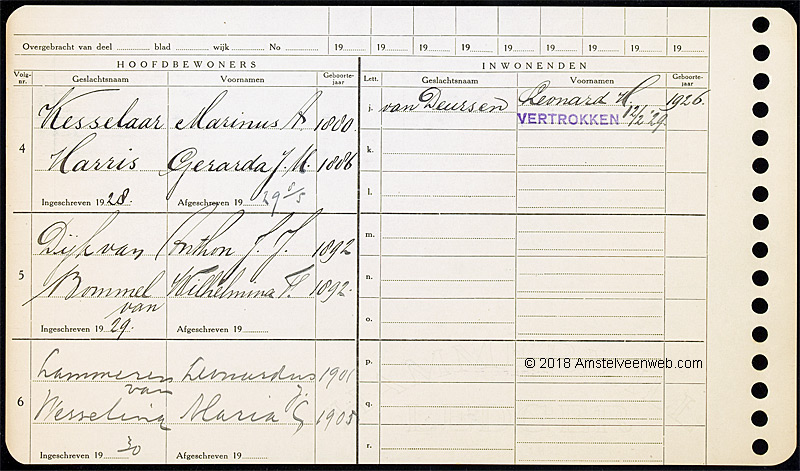 Overgebracht van deel blad wijk No 19 19 19 19 19 19 19 19 19
HOOFDBEWONERS INWONENDEN
Volg-nr. Geslachtsnaam Voornamen Geboorte-jaar Lett. Geslachtsnaam Voornamen Geboorte-jaar
4
Kesselaar Marinus A. 1880
Harris Gerarda J. M. 1886
Ingeschreven 1928. Afgeschreven 1929 8/5
j. van Deursen Leonard H. 1926.
VERTROKKEN 12/2 '29.
k.
l.
5
Dijk van Anthon J. J. 1892
Bommel Wilhelmina F. 1892.
van
Ingeschreven 1929. Afgeschreven 19
m.
n.
o.
6
Lammeren Leonardus 1901
van J.
Wesseling Maria G 1905
Ingeschreven 19 30 Afgeschreven 19
p.
q.
r.
© 2018 Amstelveenweb.com